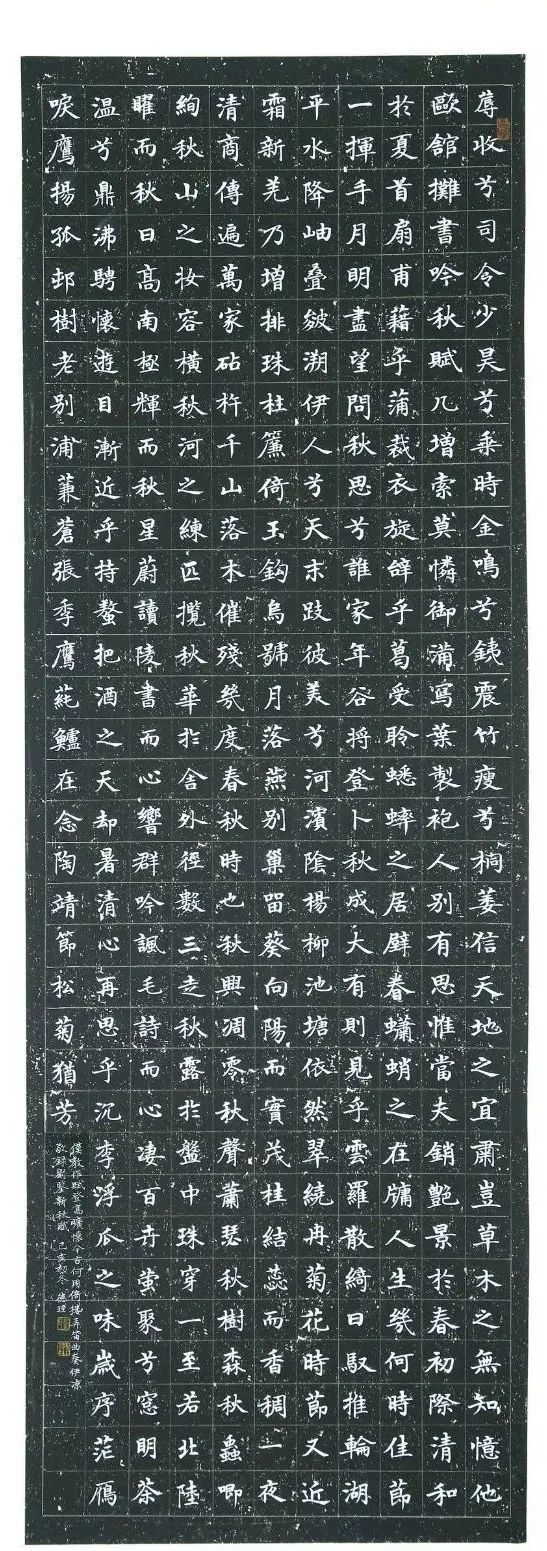 蓐收兮司令少昊兮乘時金鳴兮銕震竹瘦兮桐萎信天地之宜肅豈草木之無知憶他
歐舘攤書吟秋賦几增索莫憐御溝寫葉製袍人別有思惟當夫銷艷景於春初際清和
於夏首扇甫藉乎蒲裁衣旋辝乎葛受聆蟋蟀之居壁眷蠨蛸之在牗人生幾何時佳節
一揮手月明盡望問秋思兮誰家年谷將登卜秋成大有則見乎雲羅散綺日馭推輪湖
平水降岫叠皴溯伊人兮天末跂彼美兮河濱隂楊柳池塘依然翠繞冉菊花時節又近
霜新羌乃增排珠柱簾倚玉鈎烏號月落燕別巢留葵向陽而實茂桂結蕊而香稠一夜
清商傳遍萬家砧杵千山落木催殘幾度春秋時也秋興凋零秋聲蕭瑟秋樹森秋蟲唧
絢秋山之妝容橫秋河之練匹攬秋華於舍外徑數三走秋露於盤中珠穿一至若北陸
曜而秋日高南極輝而秋星蔚讀陵書而心響群吟諷毛詩而心凄百卉萤聚兮窓明茶
温兮鼎沸騁懷遊目漸近乎持螯把酒之天却暑清心再思乎沉李浮瓜之味嵗序茫鴈
唳鷹揚孤邨樹老別浦蒹蒼張季鷹莼鱸在念陶靖節松菊猶芳
僕教作賦登高曠懷今古何用倚捲弄笛曲奏伊凉
敬録劉鑒新秋賦 己亥初冬 德理